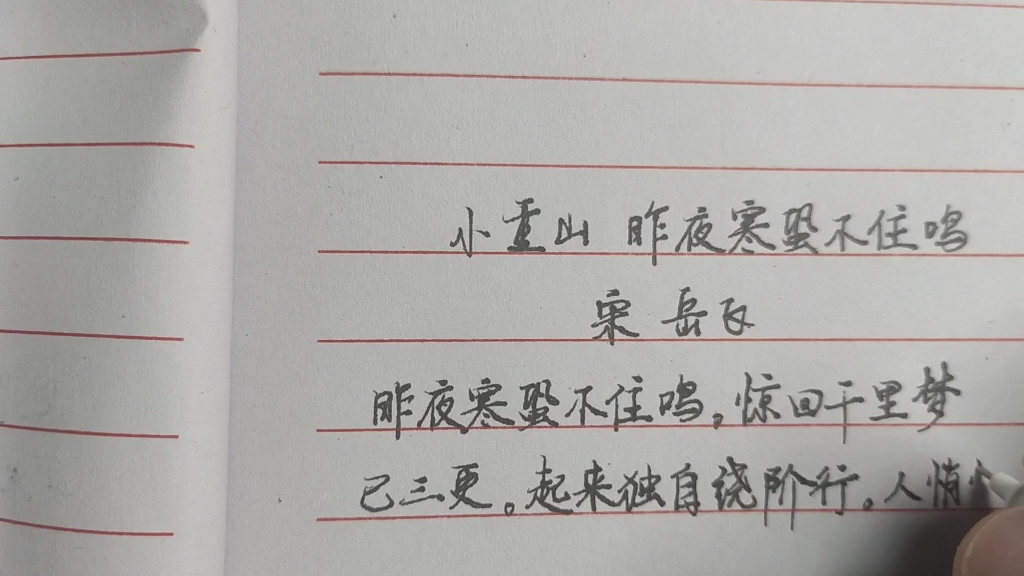 小重山 昨夜寒蛩不住鸣
宋 岳飞
昨夜寒蛩不住鸣。惊回千里梦
已三更。起来独自绕阶行。人悄